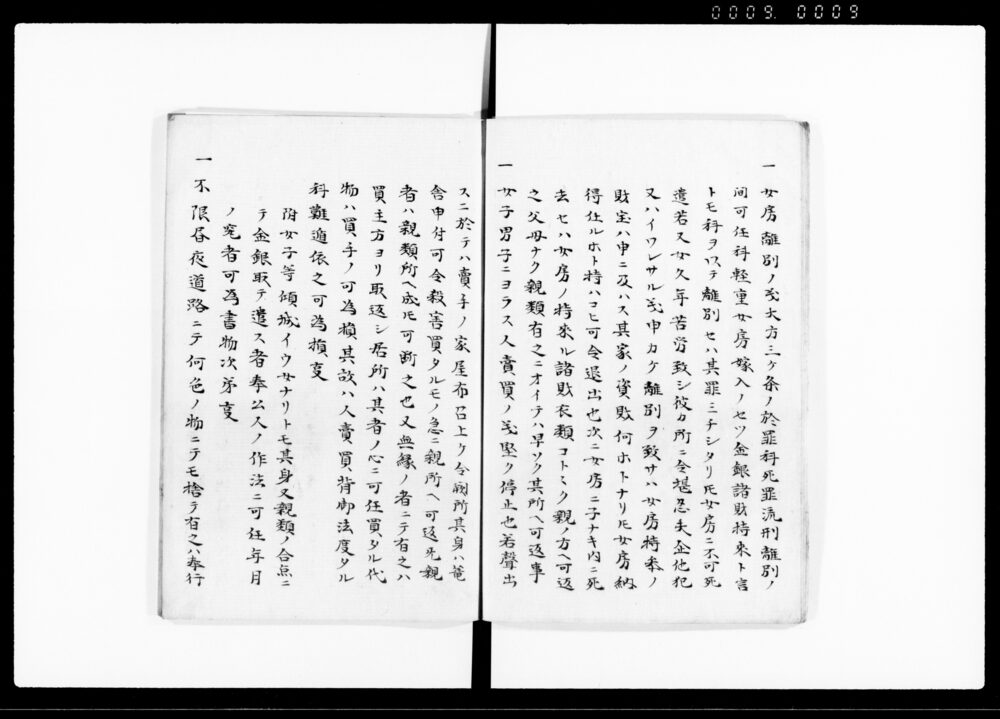 0009 0009
一 女房離別ノ㕝大方三ヶ条ノ於罪科死罪流刑離別ノ
間可任科軽重女房嫁入ノセツ金銀諸財持来ト言
トモ科ヲ以テ離別セハ其罪ミチシタリ圧女房ニ不可死
遣若又女久年苦労致シ彼カ所ニ令堪忍夫企他犯
又ハイワレサル㕝申カケ離別ヲ致サハ女房持参ノ
財宝ハ申ニ及ハス其家ノ資財何ホトナリ圧女房納
得仕ルホト持ハコヒ可令退出也次ニ女房ニ子ナキ内ニ死
去セハ女房ノ持来ル諸財衣類コトヽク親ノ方ヘ可返
之父母ナク親類有之ニオイテハ早ソク其所ヘ可返事
一 女子男子ニヨラス人賣買ノ㕝堅ク停止也若聲出
スニ於テハ賣手ノ家屋布召上ケ令闕所其身ハ篭
舎申付可令殺害買タルモノ急ニ親所ヘ可返死親
者ハ親類所ヘ成圧可断之也又無縁ノ者ニテ有之ハ
買主方ヨリ取返シ居所ハ其者ノ心ニ可任買タル代
物ハ買手ノ可為損其故ハ人賣買背御法度タル
科難遁依之可為損㕝
附女子等傾城イウ女ナリトモ其身又親類ノ合点ニ
テ金銀取テ遣ス者奉公人ノ作法ニ可任年月
ノ究者可為書物次第㕝
一 不限昼夜道路ニテ何色ノ物ニテモ捨テ有之ハ奉行